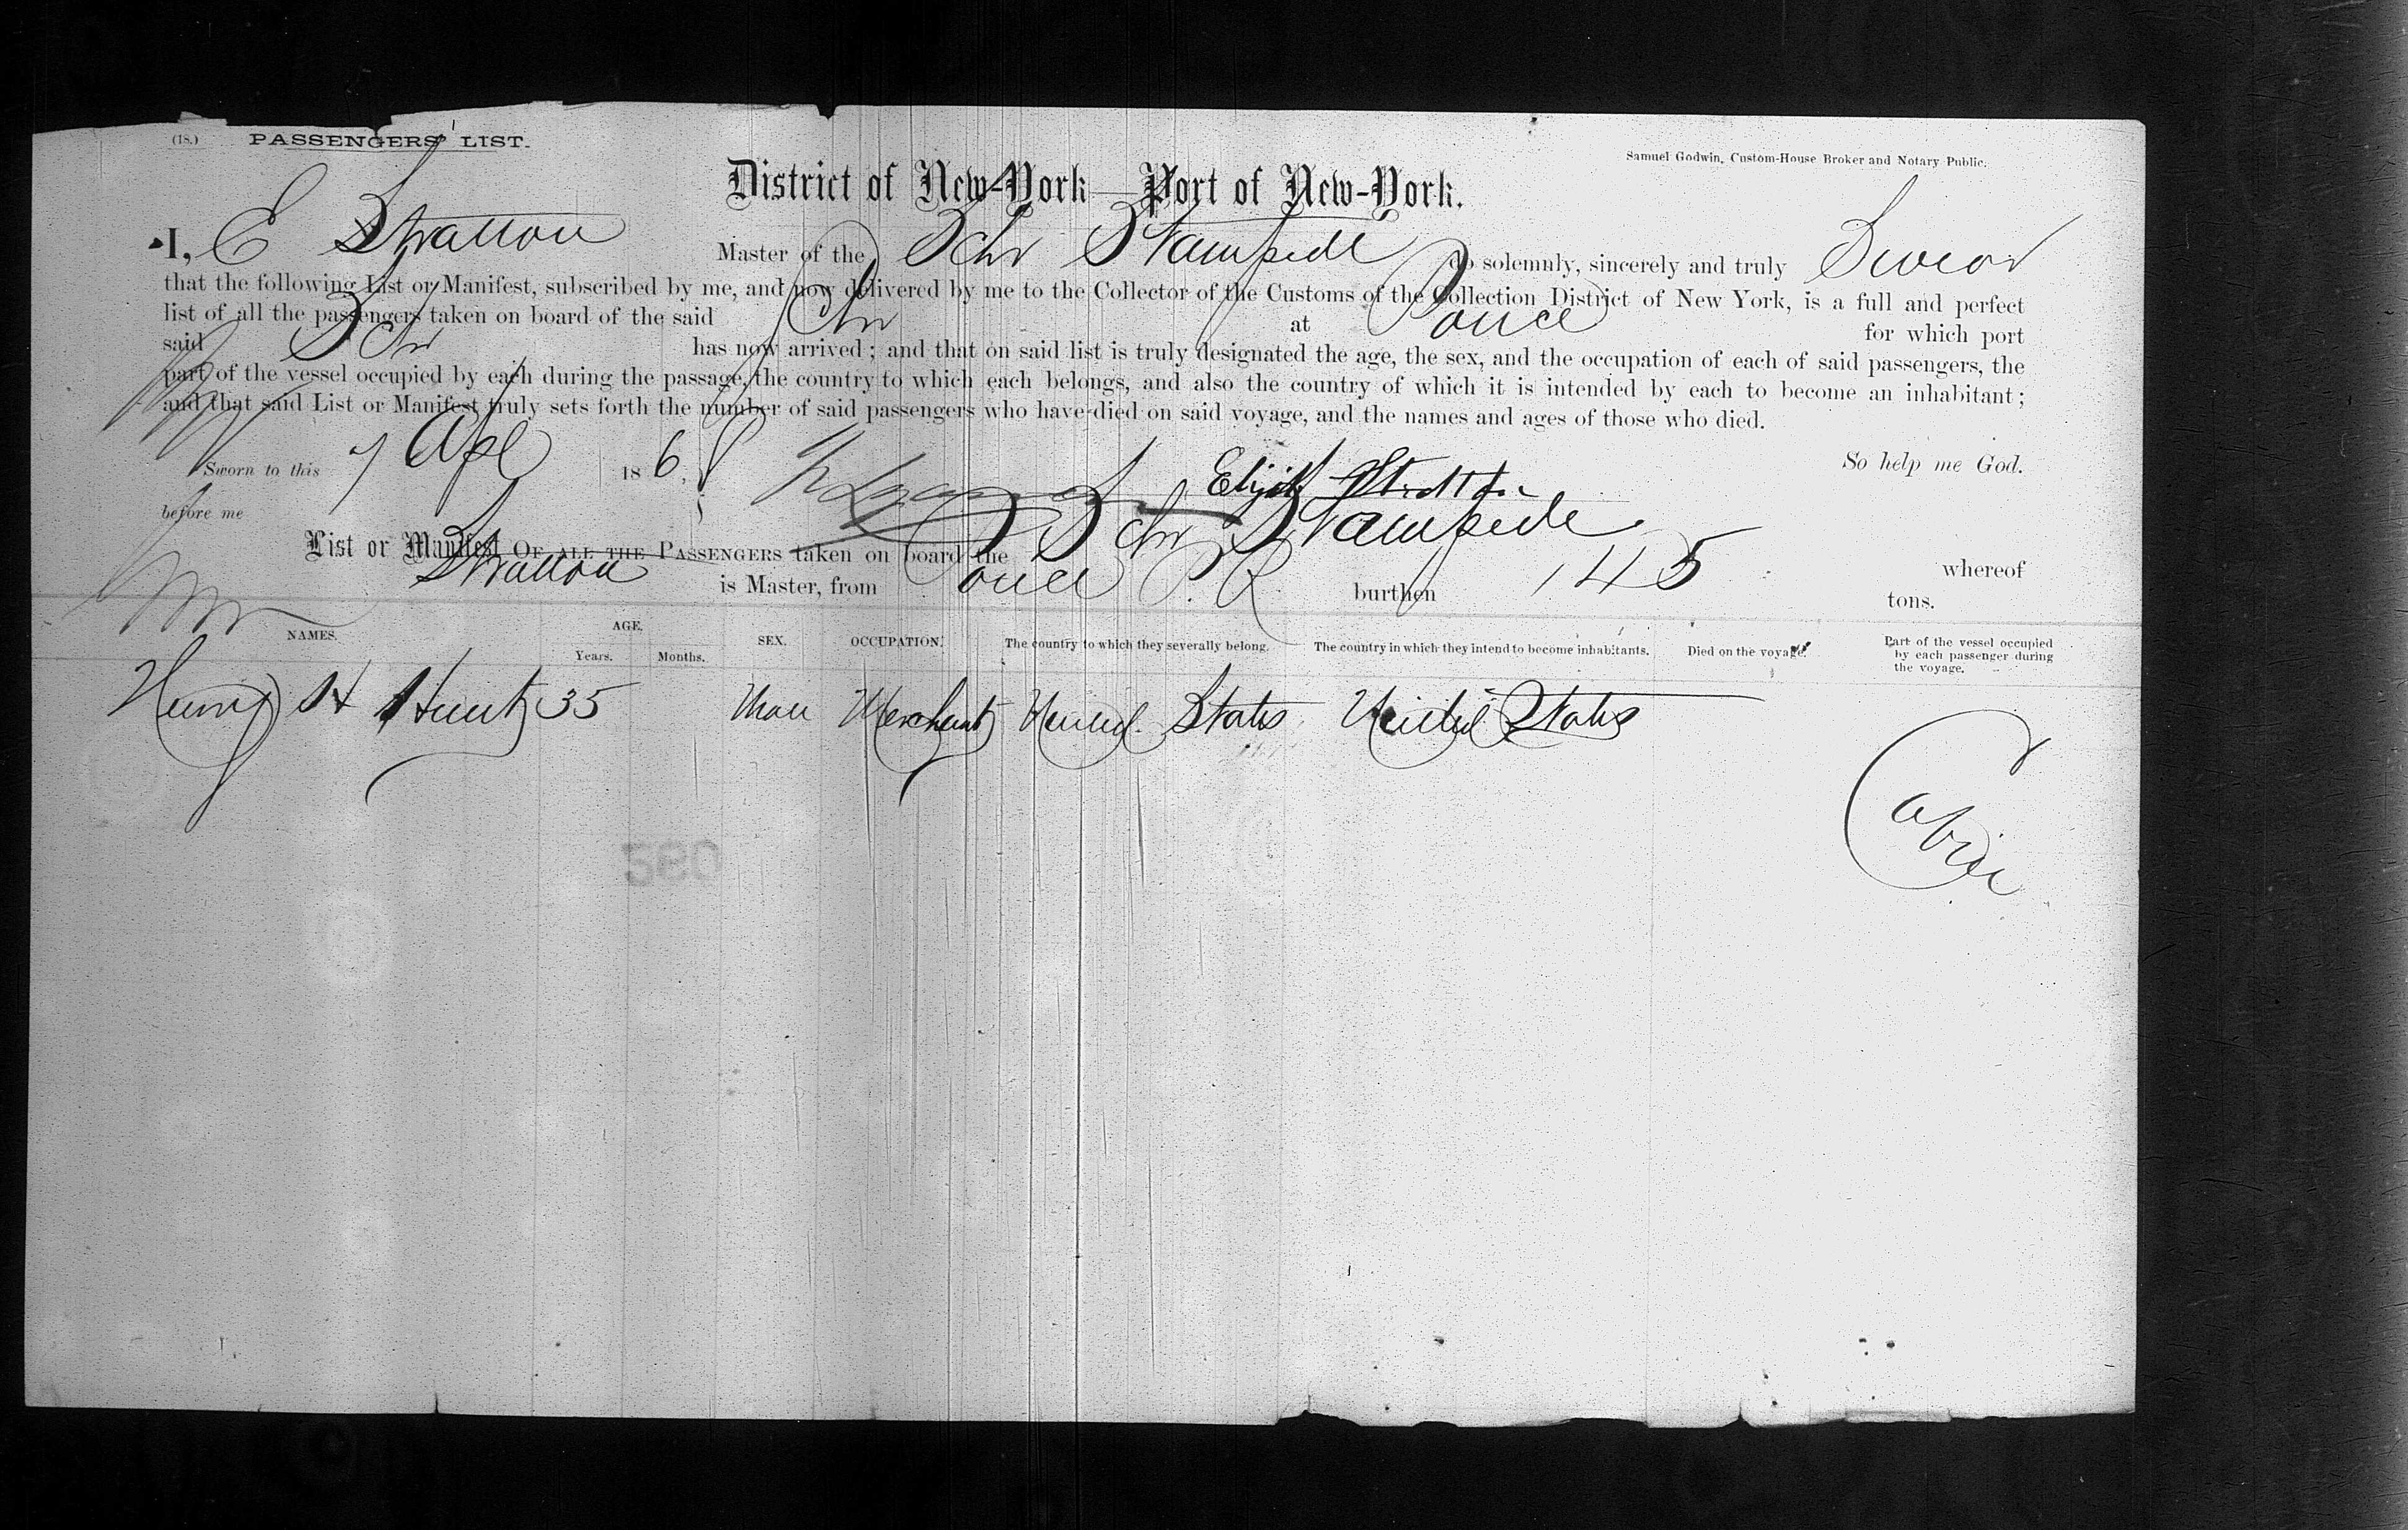 (18.) PASSENGERS' LIST.
Samuel Godwin, Custom-House Broker and Notary Public.
District of New-York—Port of New-York.
I, E Stratton Master of the Schr Stampede do solemnly, sincerely and truly Swear
that the following List or Manifest, subscribed by me, and now delivered by me to the Collector of the Customs of the Collection District of New York, is a full and perfect
list of all the passengers taken on board of the said Schr at Ponce for which port
said Schr has now arrived; and that on said list is truly designated the age, the sex, and the occupation of each of said passengers, the
part of the vessel occupied by each during the passage, the country to which each belongs, and also the country of which it is intended by each to become an inhabitant;
and that said List or Manifest truly sets forth the number of said passengers who have died on said voyage, and the names and ages of those who died.
So help me God.
Sworn to this 7 Apl 1868
before me
Elijah Stratton
List or Manifest OF ALL THE PASSENGERS taken on board the Schr Stampede whereof
Stratton is Master, from Ponce P.R. burthen 145 tons.
NAMES. AGE. Years. Months. SEX. OCCUPATION. The country to which they severally belong. The country in which they intend to become inhabitants. Died on the voyage. Part of the vessel occupied by each passenger during the voyage.
Henry H Hunt 35 Man Merchant United States United States
Cabin